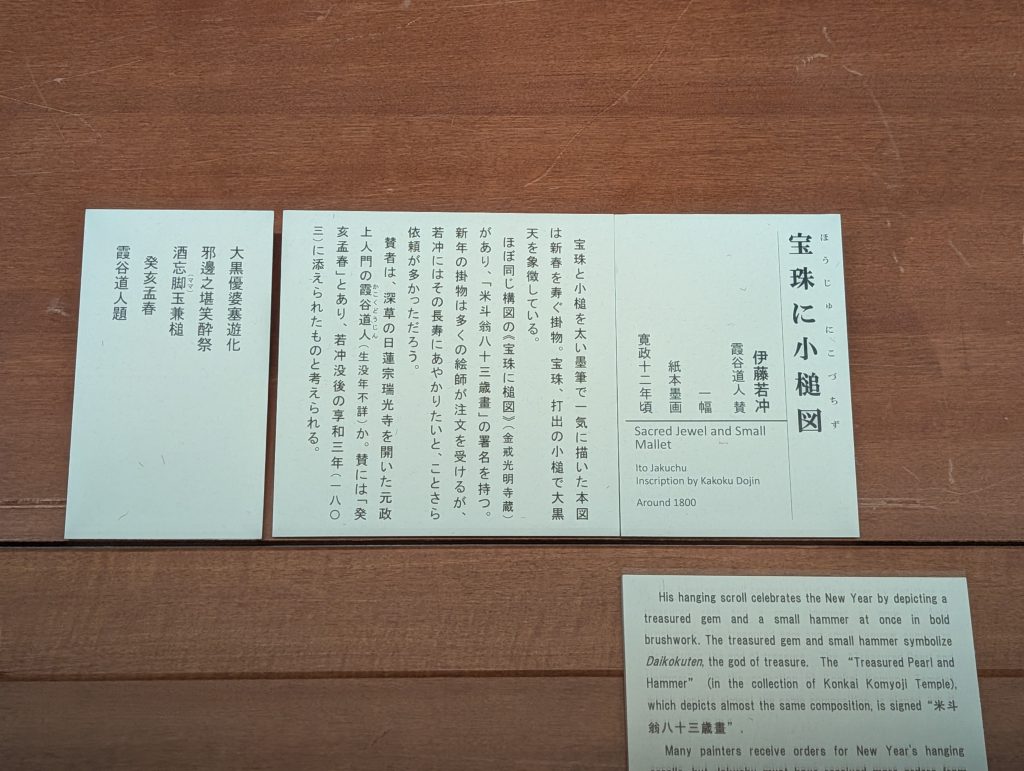 宝珠に小槌図
ほうじゅにこづちず
伊藤若冲
霞谷道人 賛
一幅
紙本墨画
寛政十二年頃
Sacred Jewel and Small
Mallet
Ito Jakuchu
Inscription by Kakoku Dojin
Around 1800
宝珠と小槌を太い墨筆で一気に描いた本図
は新春を寿ぐ掛物。宝珠、打出の小槌で大黒
天を象徴している。
ほぼ同じ構図の《宝珠に槌図》(金戒光明寺蔵)
があり、「米斗翁八十三歳畫」の署名を持つ。
新年の掛物は多くの絵師が注文を受けるが、
若冲にはその長寿にあやかりたいと、ことさら
依頼が多かっただろう。
賛者は、深草の日蓮宗瑞光寺を開いた元政
上人門の霞谷道人(生没年不詳)か。賛には「癸
かこくどうじん
亥孟春」とあり、若冲没後の享和三年(一八〇
三)に添えられたものと考えられる。
大黒優婆塞遊化
邪邊之堪笑酔祭
酒忘脚玉兼槌
(ママ)
癸亥孟春
霞谷道人題
His hanging scroll celebrates the New Year by depicting a
treasured gem and a small hammer at once in bold
brushwork. The treasured gem and small hammer symbolize
Daikokuten, the god of treasure. The “Treasured Pearl and
Hammer” (in the collection of Konkai Komyoji Temple),
which depicts almost the same composition, is signed “米斗
翁八十三歳畫”.
Many painters receive orders for New Year's hanging